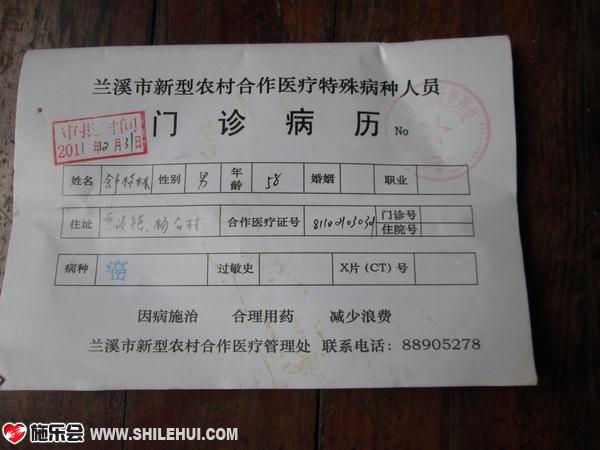 兰溪市新型农村合作医疗特殊病种人员
门诊病历 No
审批时间
2011年2月3日
姓名 舒桂林 性别 男 年龄 58 婚姻 职业
住址 合作医疗证号 门诊号
住院号
病种 癌 过敏史 X片(CT)号
因病施治 合理用药 减少浪费
兰溪市新型农村合作医疗管理处 联系电话：88905278
施乐会 WWW.SHILEHUI.COM